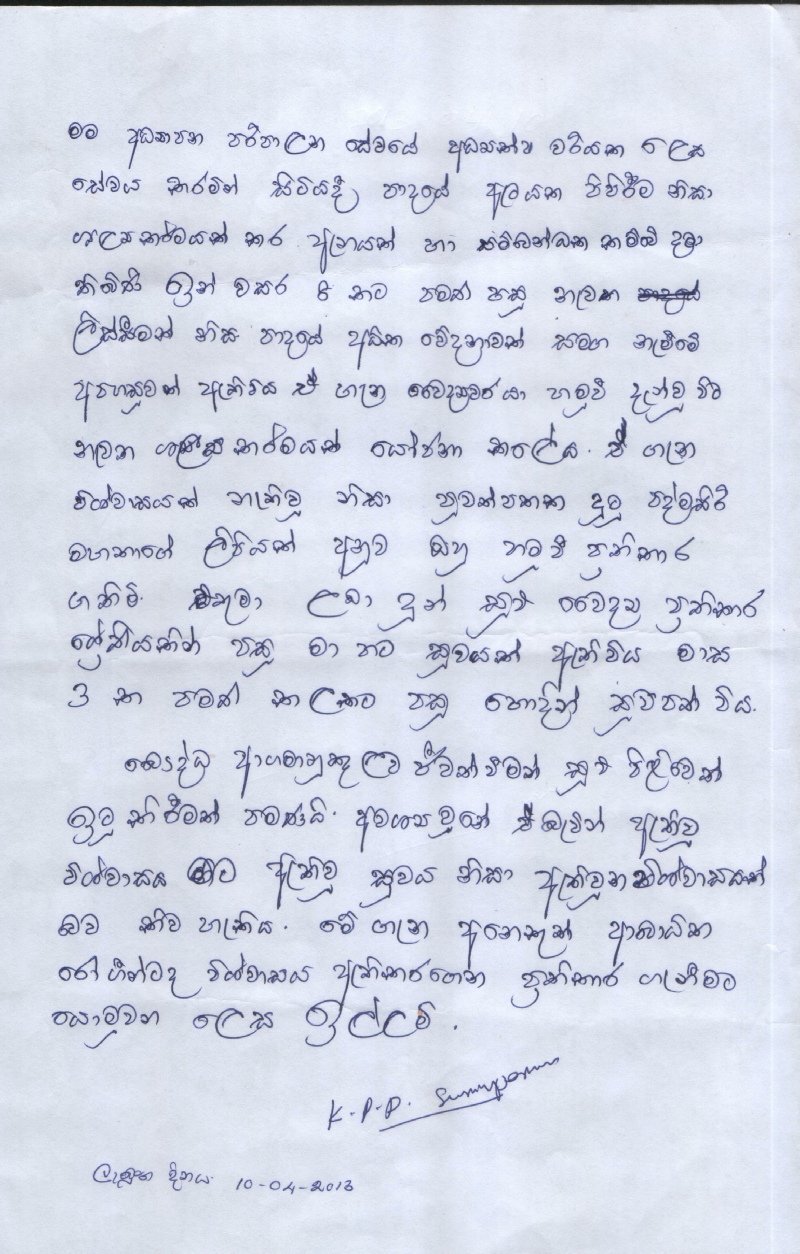 මම අධ්‍යාපන පරිපාලන සේවයේ අධ්‍යක්ෂ වරියක ලෙස
සේවය කරමින් සිටියදී පාදයේ ඇටයක පිපිරීම නිසා
ශල්‍යකර්මයක් කර ඇනයක් හා සම්බන්ධක කම්බි දමා
තිබිණි ඉන් වසර 8 කට පමණ පසු නැවත
ලිස්සීමක් නිසා පාදයේ අධික වේදනාවක් සමග නැමීමේ
අපහසුවක් ඇතිවිය ඒ ගැන වෛද්‍යවරයා හමුවී දැන්වූ විට
නැවත ශල්‍යකර්මයක් යෝජනා කලේය. ඒ ගැන
විශ්වාසයක් නැතිවූ නිසා පුවත්පතක දුටු පද්මසිරි
මහතාගේ ලිපියක් අනුව ඔහු හමුවී ප්‍රතිකාර
ගතිමි. එතුමා ලබා දුන් සුව වෛද්‍ය ප්‍රතිකාර
ශ්‍රේණියකින් පසු මා හට සුවයක් ඇතිවිය මාස
3 ක පමණ කාලයකට පසු හොදින් සුවපත් විය.
බෞද්ධ ආගමානුකූලව ජීවත්වීමත් සුව පිළිවෙත්
ඉටු කිරීමත් පමණයි. අවශ්‍ය වුනේ ඒ බැවින් ඇතිවූ
විශ්වාසය මට ඇතිවූ සුවය නිසා ඇතිවුන විශ්වාසයක්
බව කිව හැකිය. මේ ගැන අනෙකුත් ආබාධිත
රෝගීන්ටද විශ්වාසය ඇතිකරගෙන ප්‍රතිකාර ගැනීමට
යොමුවන ලෙස ඉල්ලමි.
K.P.P.
දිනය 10-04-2013